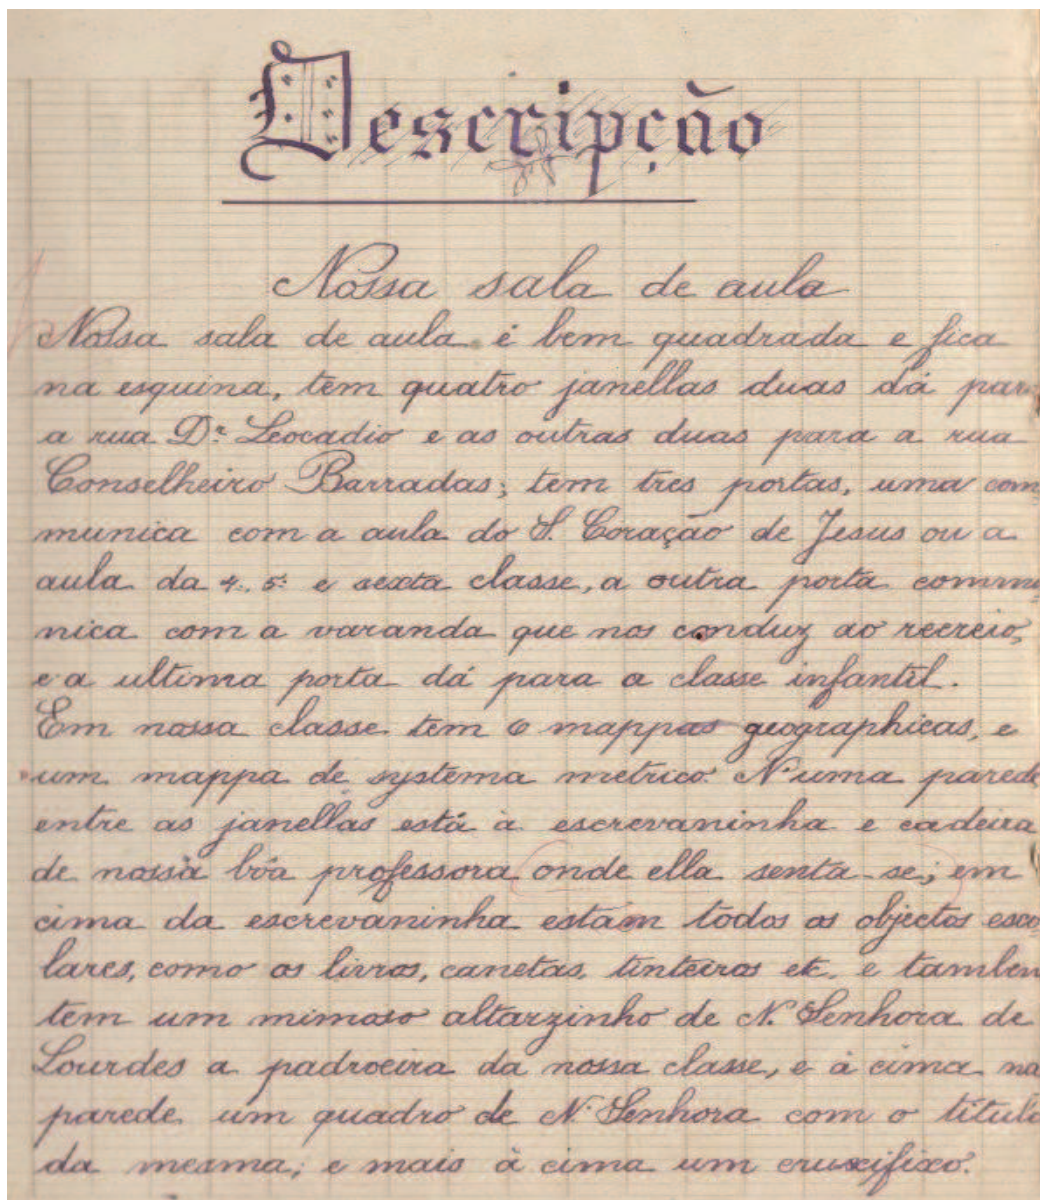 Descripção
Nossa sala de aula
Nossa sala de aula é bem quadrada e fica
na esquina, tem quatro janellas duas dá para
a rua Dr. Leocadio e as outras duas para a rua
Conselheiro Barradas; tem tres portas, uma com
munica com a aula do S. Coração de Jesus ou a
aula da 4. 5ª e sexta classe, a outra porta commu
nica com a varanda que nos conduz ao recreio,
e a ultima porta dá para a classe infantil.
Em nossa classe tem 6 mappas geographicas, e
um mappa de systema metrico. N'uma parede
entre as janellas está à escrevaninha e cadeira
de nossa bôa professora onde ella senta-se; em
cima da escrevaninha estam todos os objectos esco
lares, como os livros, canetas, tinteiros etc. e tambem
tem um mimoso altarzinho de N. Senhora de
Lourdes a padroeira da nossa classe, e à cima na
parede um quadro de N. Senhora com o titulo
da mesma; e mais à cima um crusifixo.